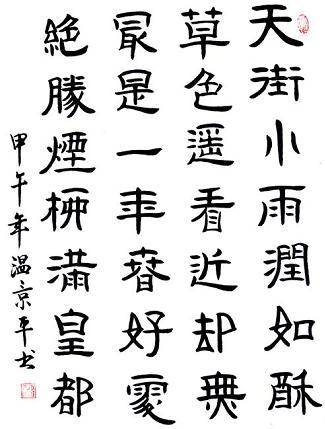 天街小雨潤如酥
草色遥看近却無
最是一年春好處
絶勝煙柳滿皇都
甲午年温京平书